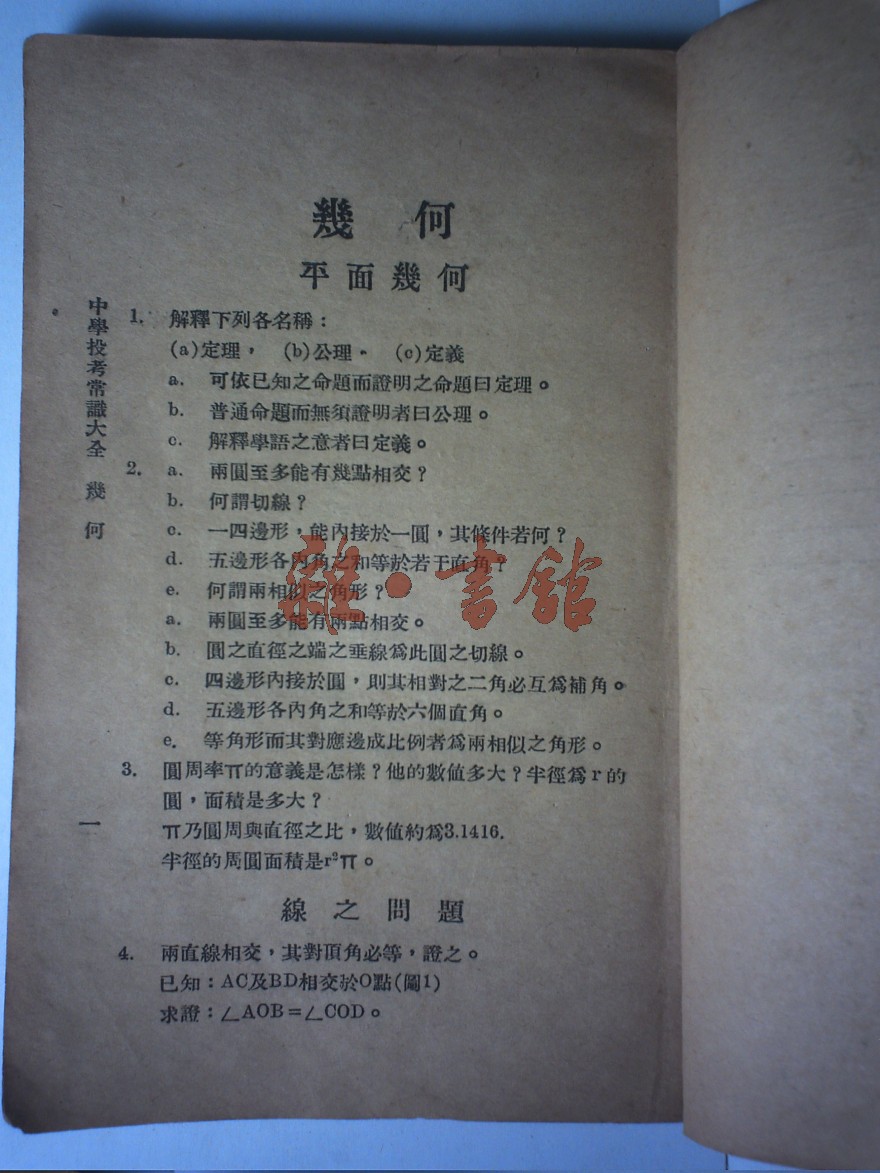 幾何
平面幾何
1. 解釋下列各名稱：
(a)定理， (b)公理。 (c)定義
a. 可依已知之命題而證明之命題曰定理。
b. 普通命題而無須證明者曰公理。
c. 解釋學語之意者曰定義。
2. a. 兩圓至多能有幾點相交？
b. 何謂切線？
c. 一四邊形，能內接於一圓，其條件若何？
d. 五邊形各內角之和等於若干直角？
e. 何謂兩相似之角形？
a. 兩圓至多能有兩點相交。
b. 圓之直徑之端之垂線爲此圓之切線。
c. 四邊形內接於圓，則其相對之二角必互爲補角。
d. 五邊形各內角之和等於六個直角。
e. 等角形而其對應邊成比例者爲兩相似之角形。
3. 圓周率π的意義是怎樣？他的數值多大？半徑爲r的
圓，面積是多大？
π乃圓周與直徑之比，數值約爲3.1416.
半徑的周圓面積是r²π。
線之問題
4. 兩直線相交，其對頂角必等，證之。
已知：AC及BD相交於O點(圖1)
求證：∠AOB=∠COD。
中學投考常識大全 幾何
一
雜·書館